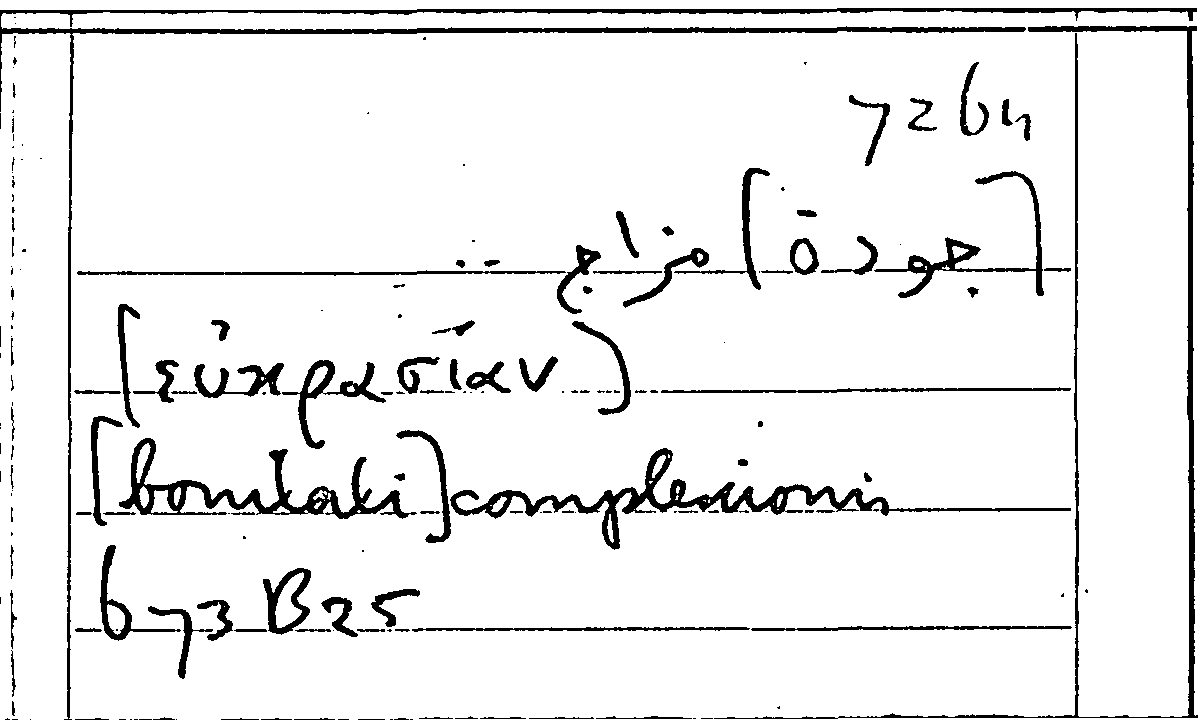 7264
[جودة] مزاج
[εὐκρασίαν]
[bonitati] complexionis
673 B 25